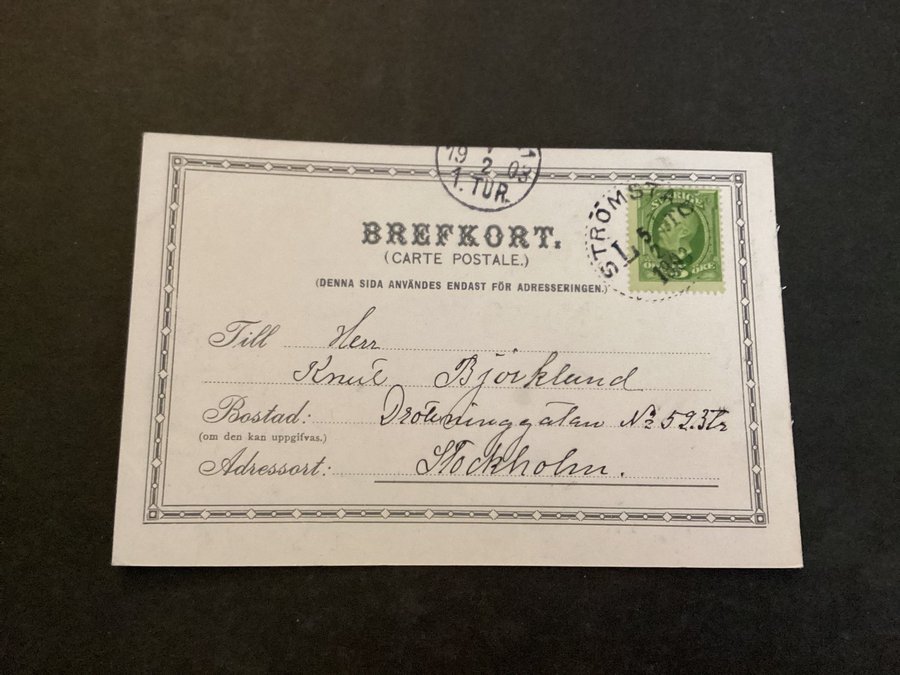 1
19 2 03
1. TUR.
STRÖMS
SVERIGE
5
ÖRE
BREFKORT.
(CARTE POSTALE.)
(DENNA SIDA ANVÄNDES ENDAST FÖR ADRESSERINGEN.)
Till Herr
Knut Björklund
Bostad: Drottninggatan No 59. 3 tr
(om den kan uppgifvas.)
Adressort: Stockholm.